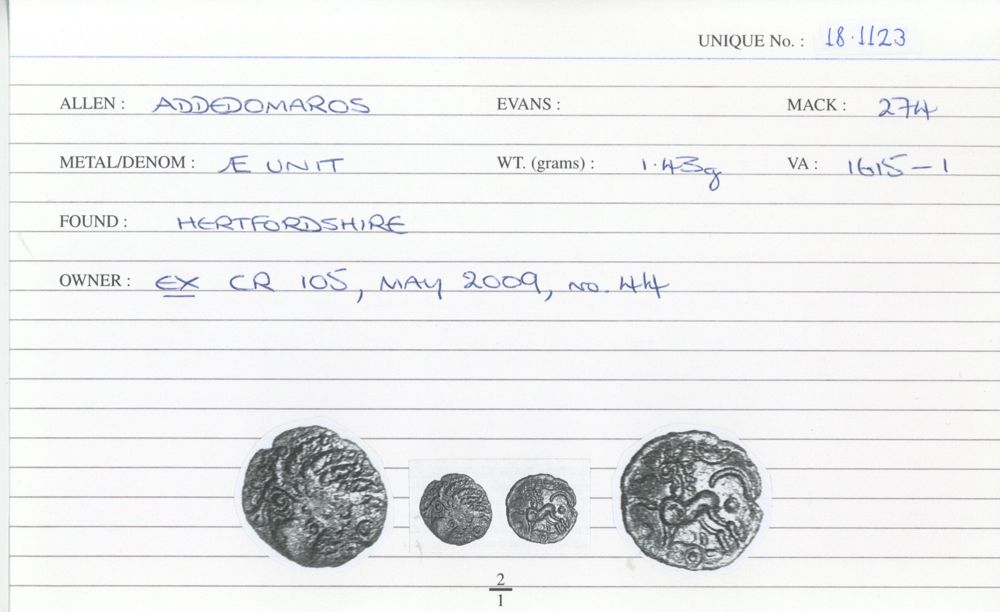 UNIQUE No. : 18·1123
ALLEN : ADDEDOMAROS EVANS : MACK : 274
METAL/DENOM : Æ UNIT WT. (grams) : 1·43g VA : 1615-1
FOUND : HERTFORDSHIRE
OWNER : EX CR 105, MAY 2009, no. 44
2
1